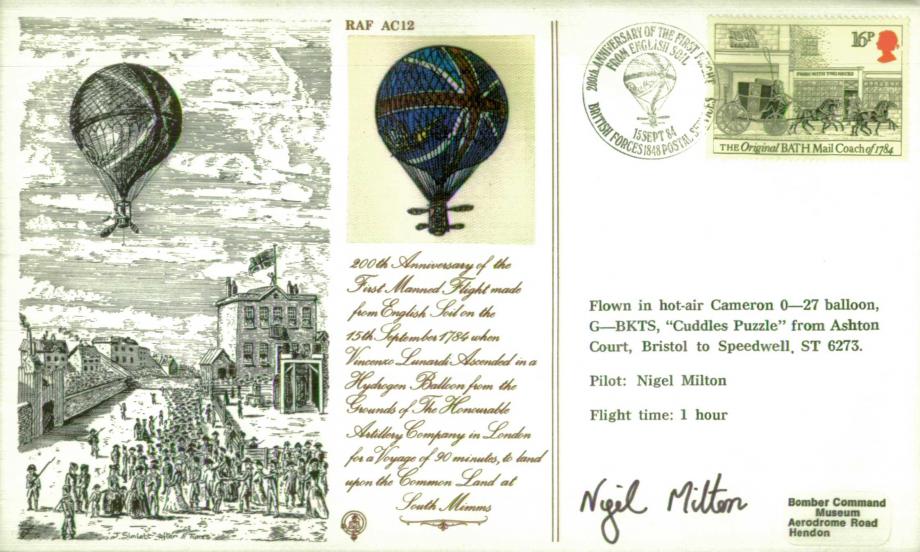 RAF AC12
200th Anniversary of the
First Manned Flight made
from English Soil on the
15th September 1784 when
Vincenzo Lunardi Ascended in a
Hydrogen Balloon from the
Grounds of The Honourable
Artillery Company in London
for a Voyage of 90 minutes, to land
upon the Common Land at
South Mimms
200th ANNIVERSARY OF THE FIRST FLIGHT
FROM ENGLISH SOIL
15 SEPT 84
BRITISH FORCES 1848 POSTAL SERVICES
16P
THE Original BATH Mail Coach of 1784
Flown in hot-air Cameron 0—27 balloon,
G—BKTS, “Cuddles Puzzle” from Ashton
Court, Bristol to Speedwell, ST 6273.
Pilot: Nigel Milton
Flight time: 1 hour
Nigel Milton
Bomber Command
Museum
Aerodrome Road
Hendon